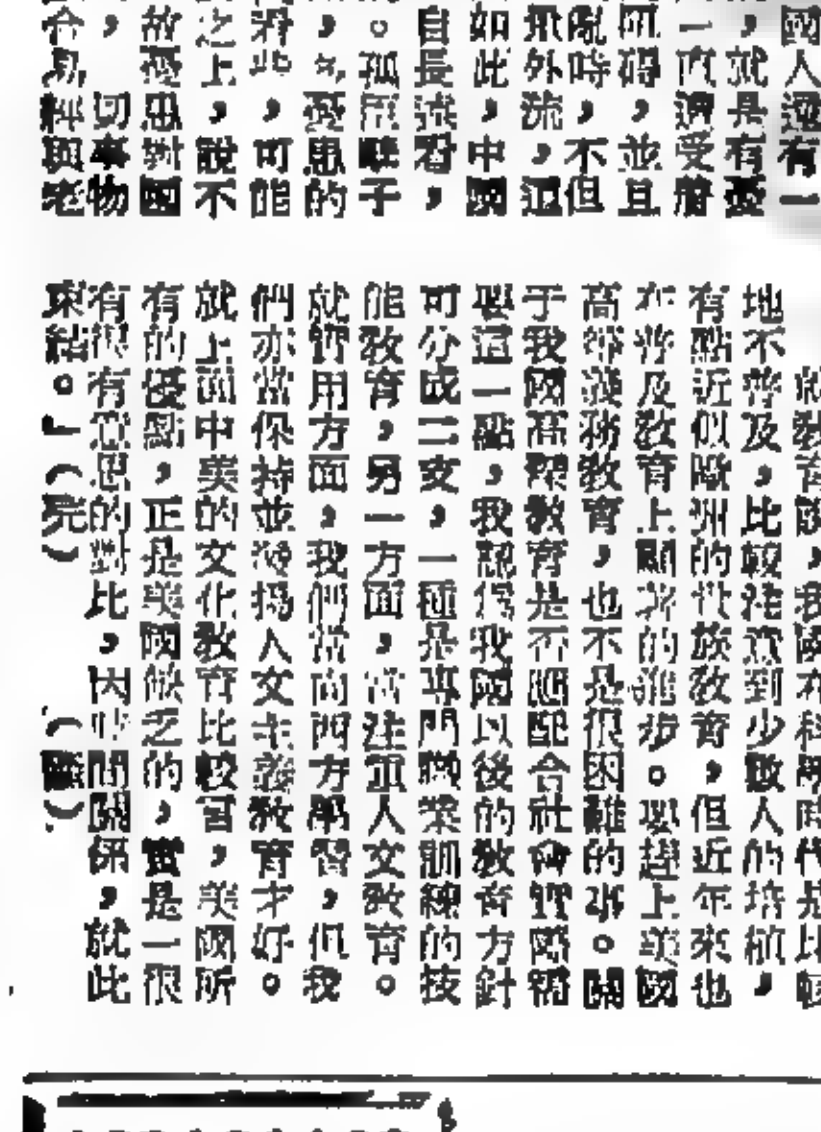 國人還有一
，就是有憂
一直遭受脅
阻碍，並且
亂時，不但
飛外流，還
如此，中國
自長遠看，
。孤臣孽子
，憂患的
將此，可能
之上，說不
故憂患對國
，切事物
合易經與老
就教育說，我國在科學時代是比較
地不普及，比較注意到少數人的培植，
有點近似歐洲的代族教育，但近年來也
在普及教育上顯著的進步。要趕上美國
高等義務教育，也不是很困難的事。關
于我國高等教育是否應配合社會實際需
要這一點，我認為我國以後的教育方針
可分成二支，一種是專門職業訓練的技
能教育，另一方面，當注重人文教育。
就實用方面，我們當向西方學習，但我
們亦當保持並發揚人文主義教育才好。
就上面中美的文化教育比較言，美國所
有的優點，正是美國缺乏的，實是一很
有很有意思的對比，因時間關係，就此
束結。」（完）